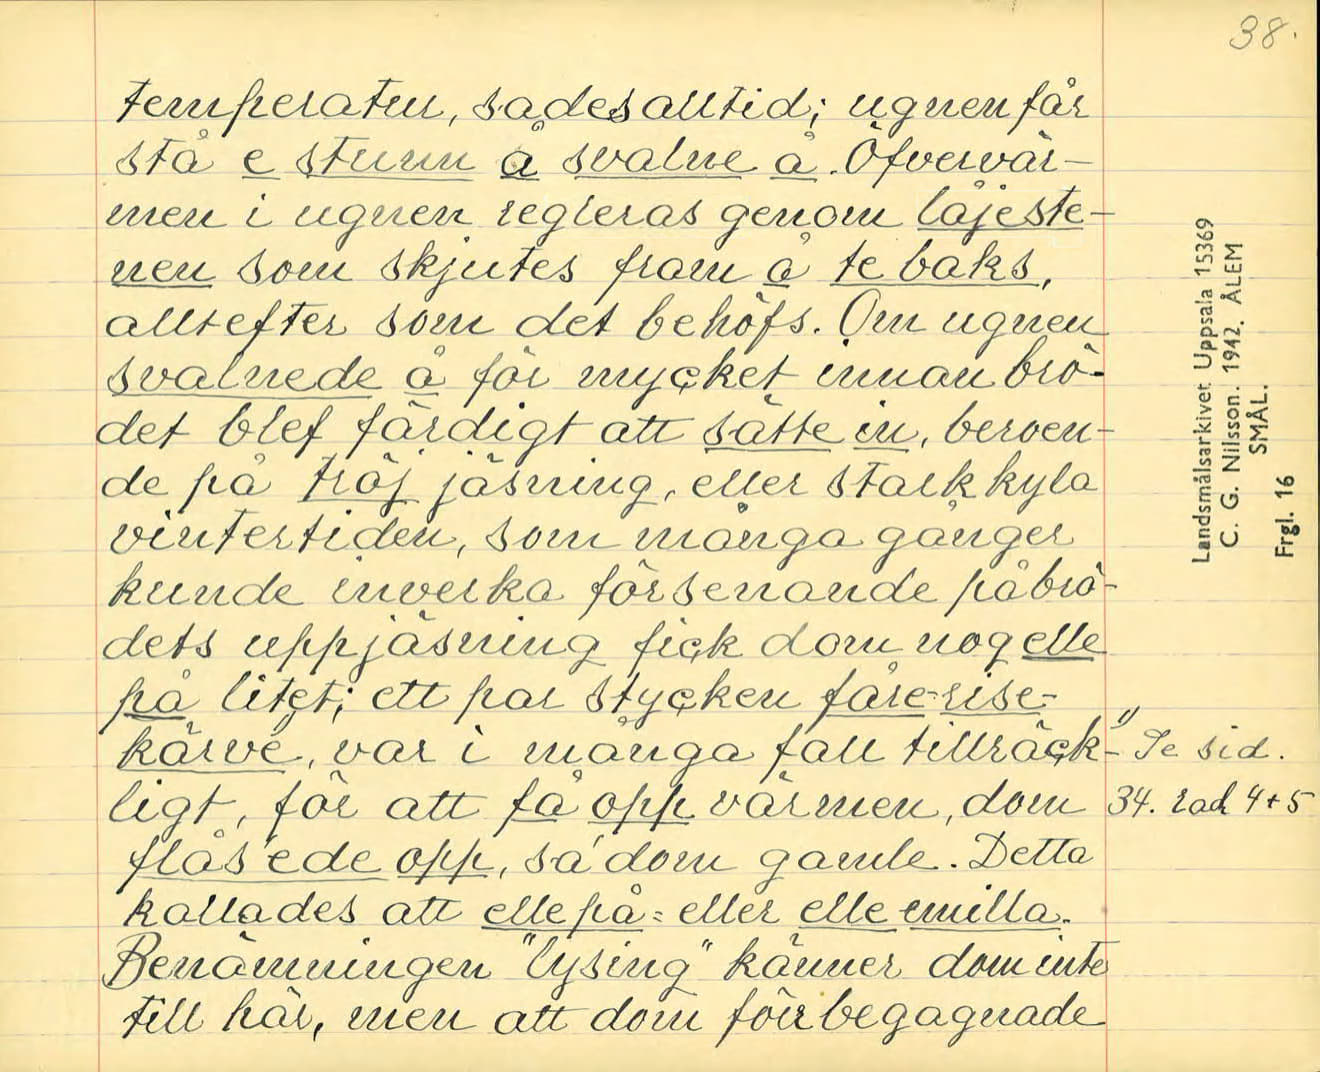 38.
temperatur, sades alltid; ugnen får
stå e stunn å svalne å. Öfvervär-
men i ugnen regleras genom låjeste-
nen som skjutes fram å te baks,
allt efter som det behöfs. Om ugnen
svalnede å för mycket innan brö-
det blef färdigt att sätte in, beroen-
de på tröj jäsning, eller stark kyla
vintertiden, som många gånger
kunde inverka försenande på brö-
dets uppjäsning fick dom nog elle
på litet; ett par stycken fåre-rise-
kärve, var i många fall tillräck-
ligt, för att få opp värmen, dom
flås'ede opp, sa' dom gamle. Detta
kallades att elle på = eller elle emilla.
Benämningen "lysing" känner dom inte
till här, men att dom förr begagnade
" Se sid.
34. rad 4+5
Landsmålsarkivet Uppsala 15369
C. G. Nilsson. 1942. ÅLEM
SMÅL.
Frgl. 16